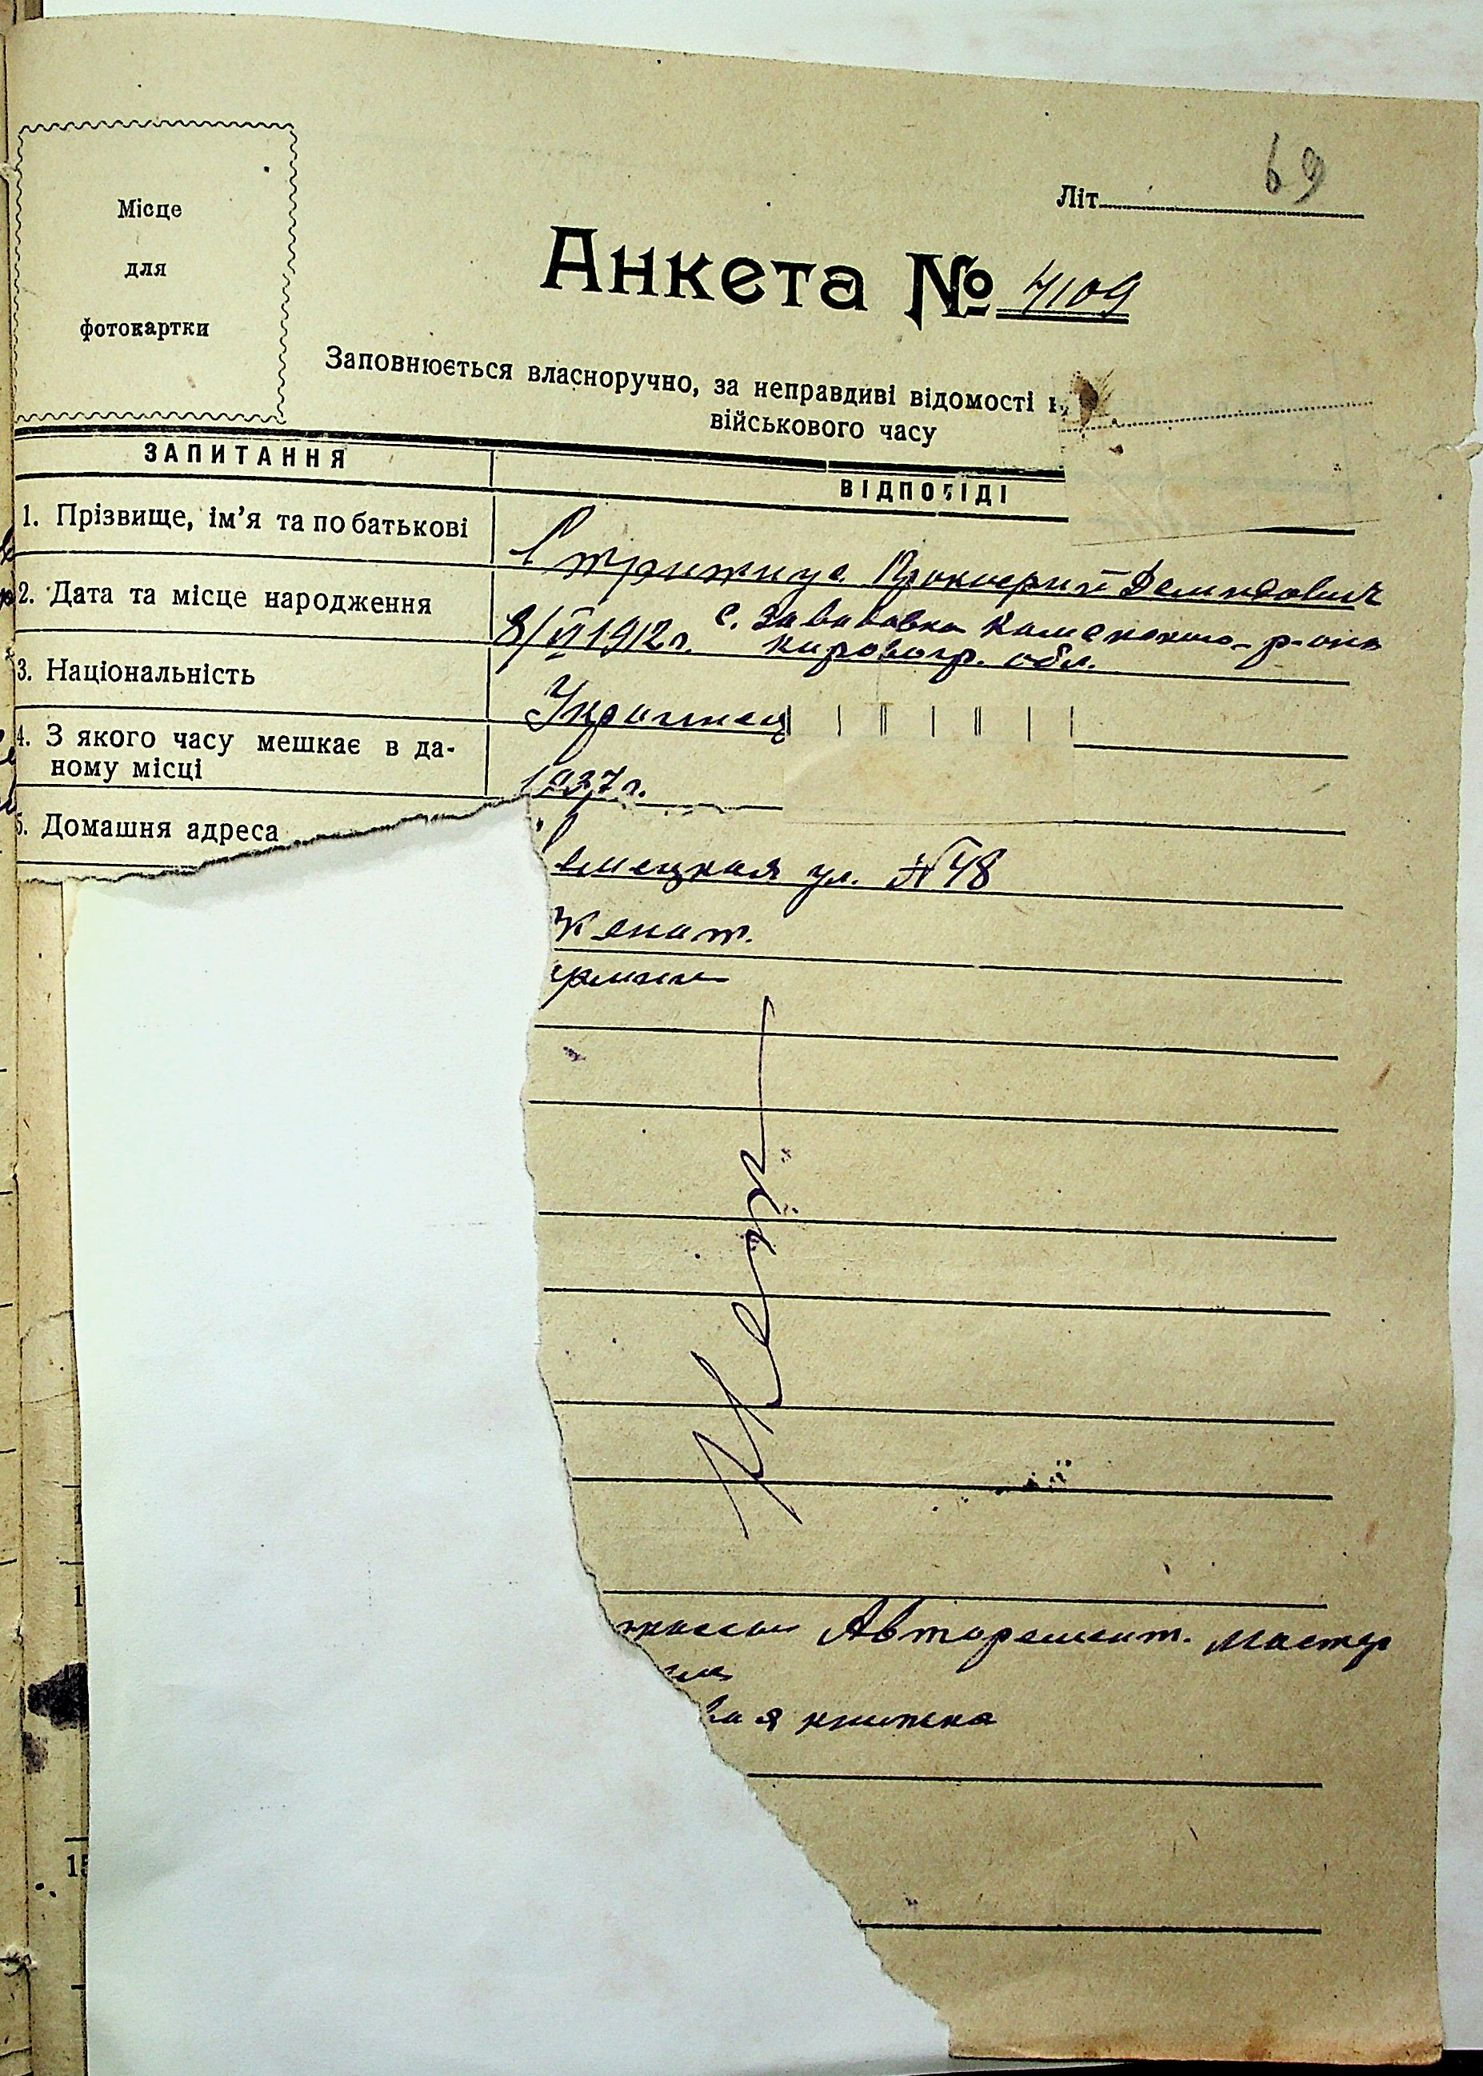 69
Літ.
Місце
для
фотокартки
Анкета № 4109
Заповнюється власноручно, за неправдиві відомості
військового часу
ЗАПИТАННЯ
ВІДПОВІДІ
1. Прізвище, ім'я та по батькові
Прокофий Демидович
2. Дата та місце народження
8/VI 1912 г. с. Каменского р-она
Кировогр. обл.
3. Національність
Украинец
4. З якого часу мешкає в да-
ному місці
1937 г.
5. Домашня адреса
мецкая ул. №48
Женат.
Авторемонт. мастер
вая книжка
15